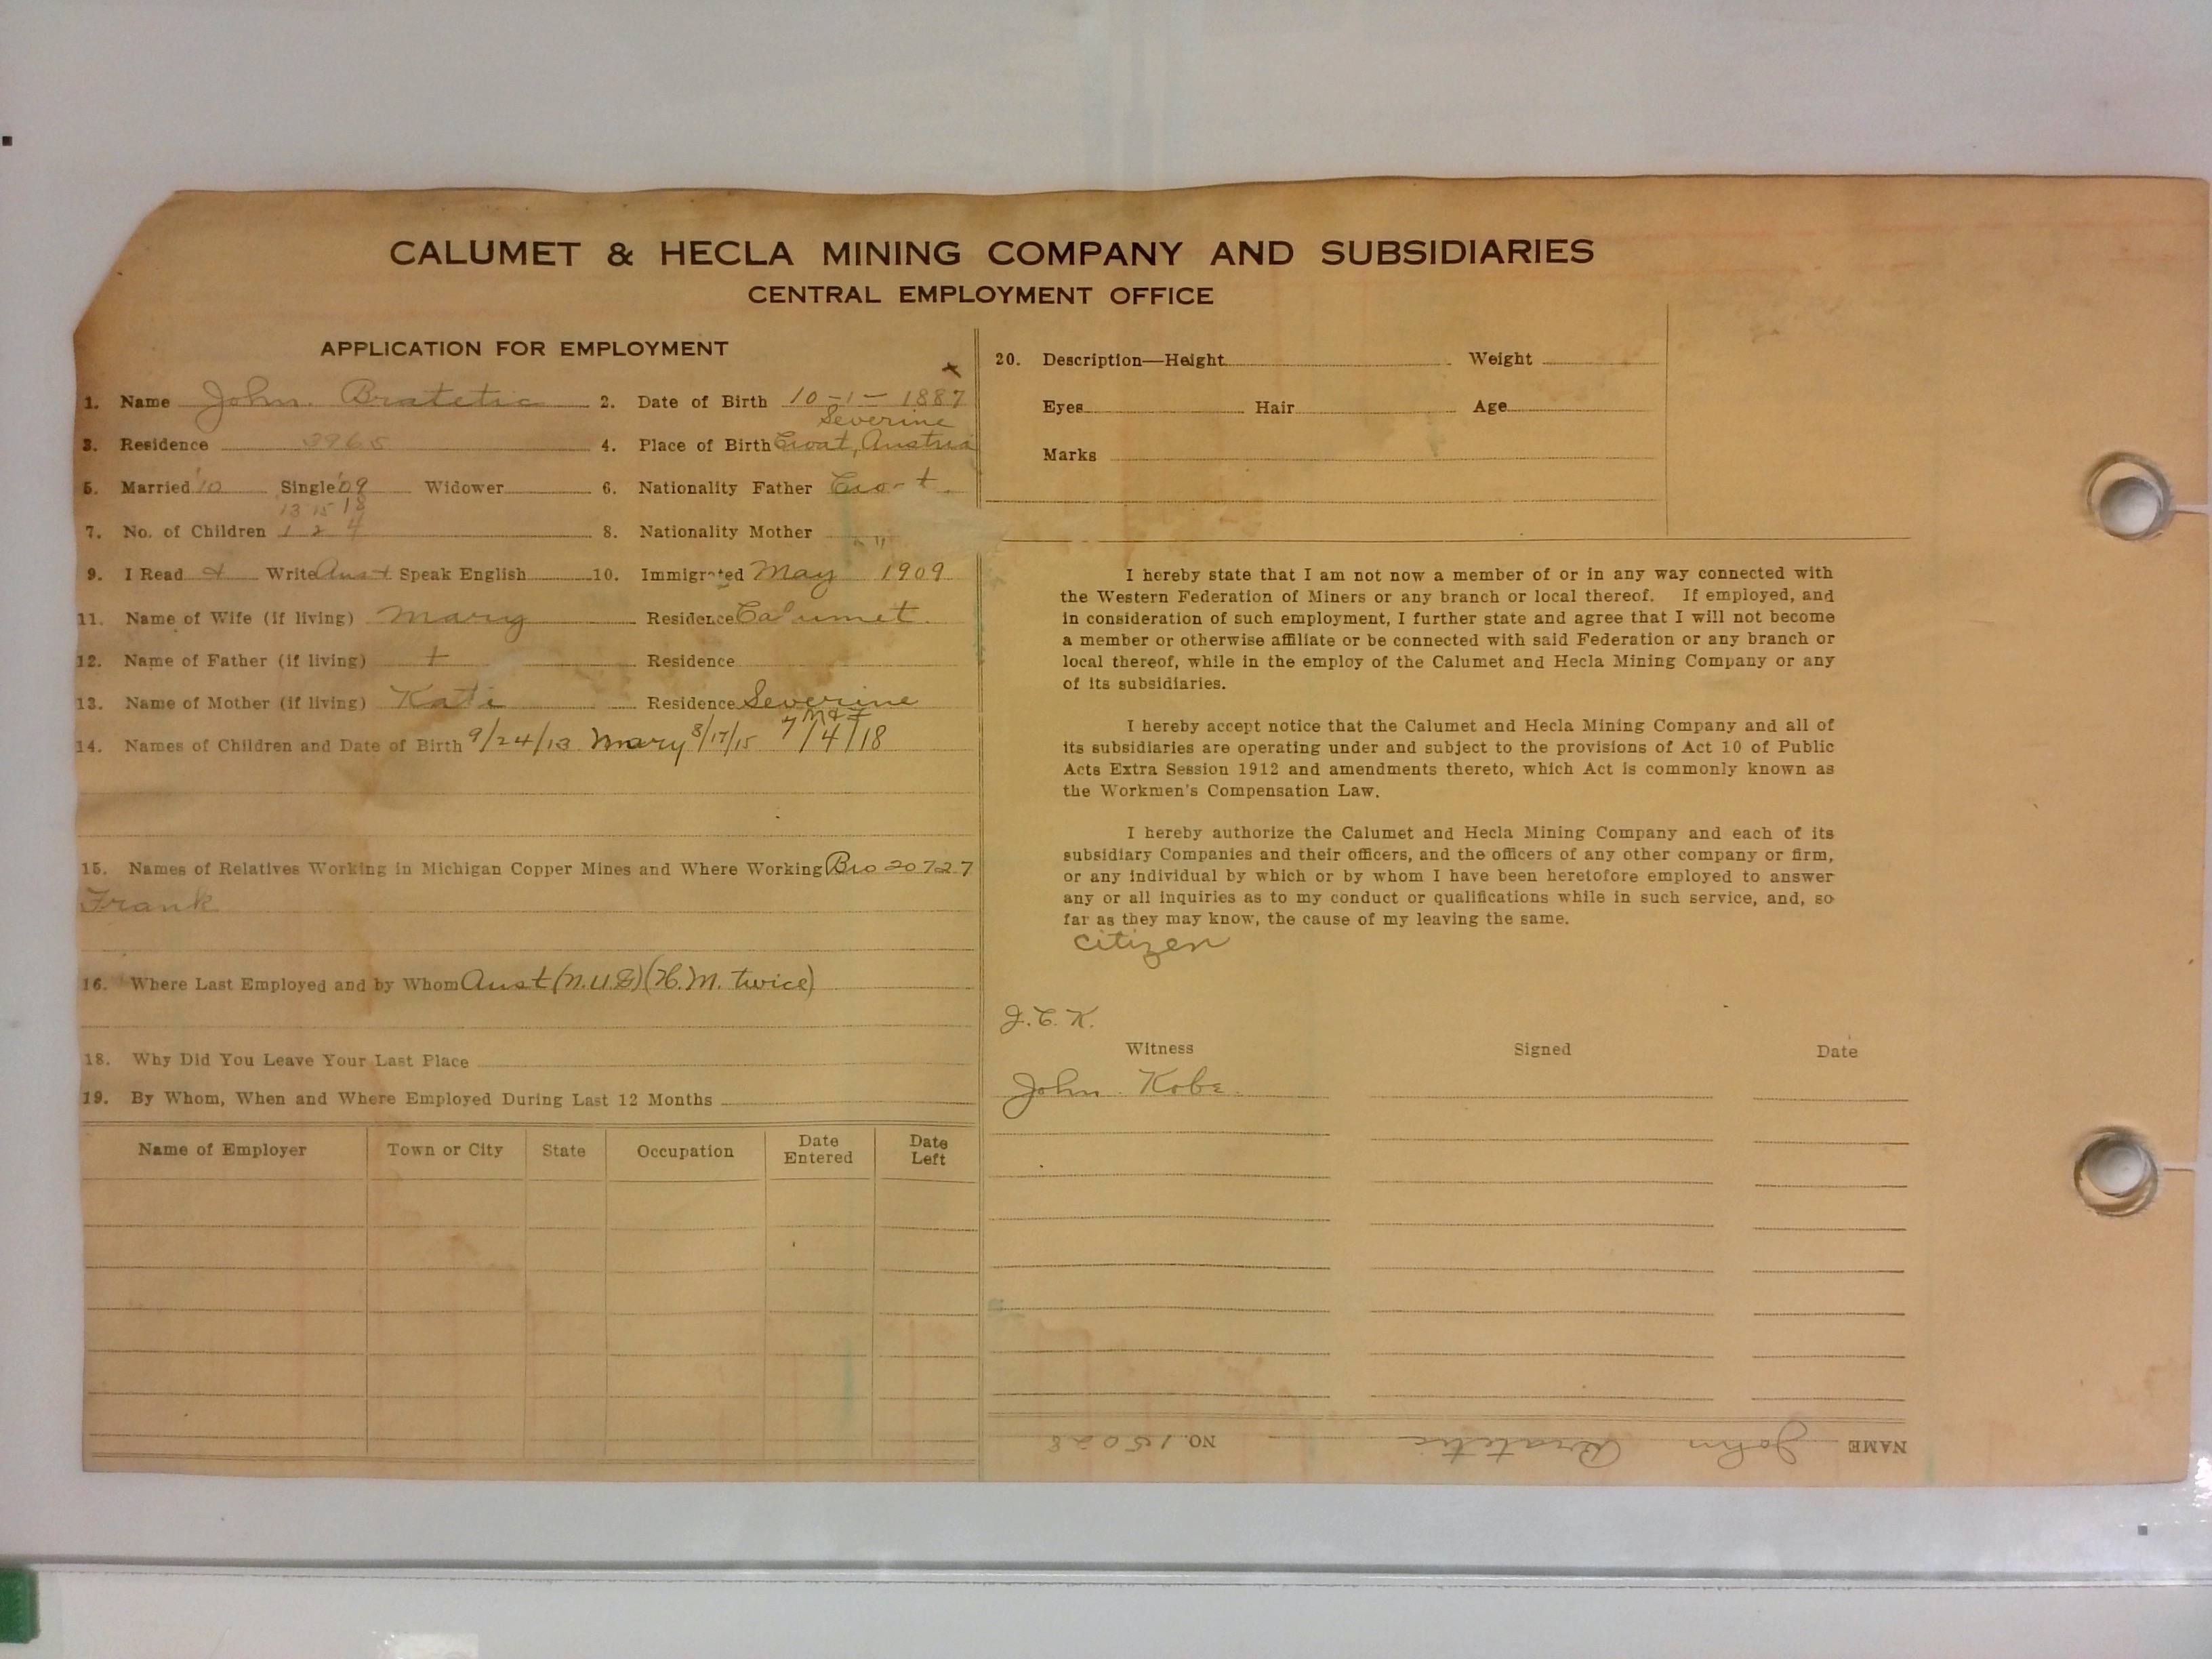 CALUMET & HECLA MINING COMPANY AND SUBSIDIARIES
CENTRAL EMPLOYMENT OFFICE
APPLICATION FOR EMPLOYMENT
1. Name John Bratetic 2. Date of Birth 10-1-1887
Severine
3. Residence 3965 4. Place of Birth Croat, Austria
5. Married '10 Single '09 Widower 6. Nationality Father Croat
13 15 18
7. No. of Children 1 2 4 8. Nationality Mother " "
9. I Read & Write Aust Speak English 10. Immigrated May 1909
11. Name of Wife (if living) Mary Residence Calumet
12. Name of Father (if living) + Residence
13. Name of Mother (if living) Kati Residence Severine
M & F
14. Names of Children and Date of Birth 9/24/13 Mary 8/17/15 7/4/18
15. Names of Relatives Working in Michigan Copper Mines and Where Working Bro 20727
Frank
16. Where Last Employed and by Whom Aust (N.U.G) (H.M. twice)
18. Why Did You Leave Your Last Place
19. By Whom, When and Where Employed During Last 12 Months
Name of Employer Town or City State Occupation Date Entered Date Left
20. Description—Height Weight
Eyes Hair Age
Marks
I hereby state that I am not now a member of or in any way connected with
the Western Federation of Miners or any branch or local thereof. If employed, and
in consideration of such employment, I further state and agree that I will not become
a member or otherwise affiliate or be connected with said Federation or any branch or
local thereof, while in the employ of the Calumet and Hecla Mining Company or any
of its subsidiaries.
I hereby accept notice that the Calumet and Hecla Mining Company and all of
its subsidiaries are operating under and subject to the provisions of Act 10 of Public
Acts Extra Session 1912 and amendments thereto, which Act is commonly known as
the Workmen's Compensation Law.
I hereby authorize the Calumet and Hecla Mining Company and each of its
subsidiary Companies and their officers, and the officers of any other company or firm,
or any individual by which or by whom I have been heretofore employed to answer
any or all inquiries as to my conduct or qualifications while in such service, and, so
far as they may know, the cause of my leaving the same.
citizen
J.C.K.
Witness Signed Date
John Kobe
NAME John Bratetic NO. 15028